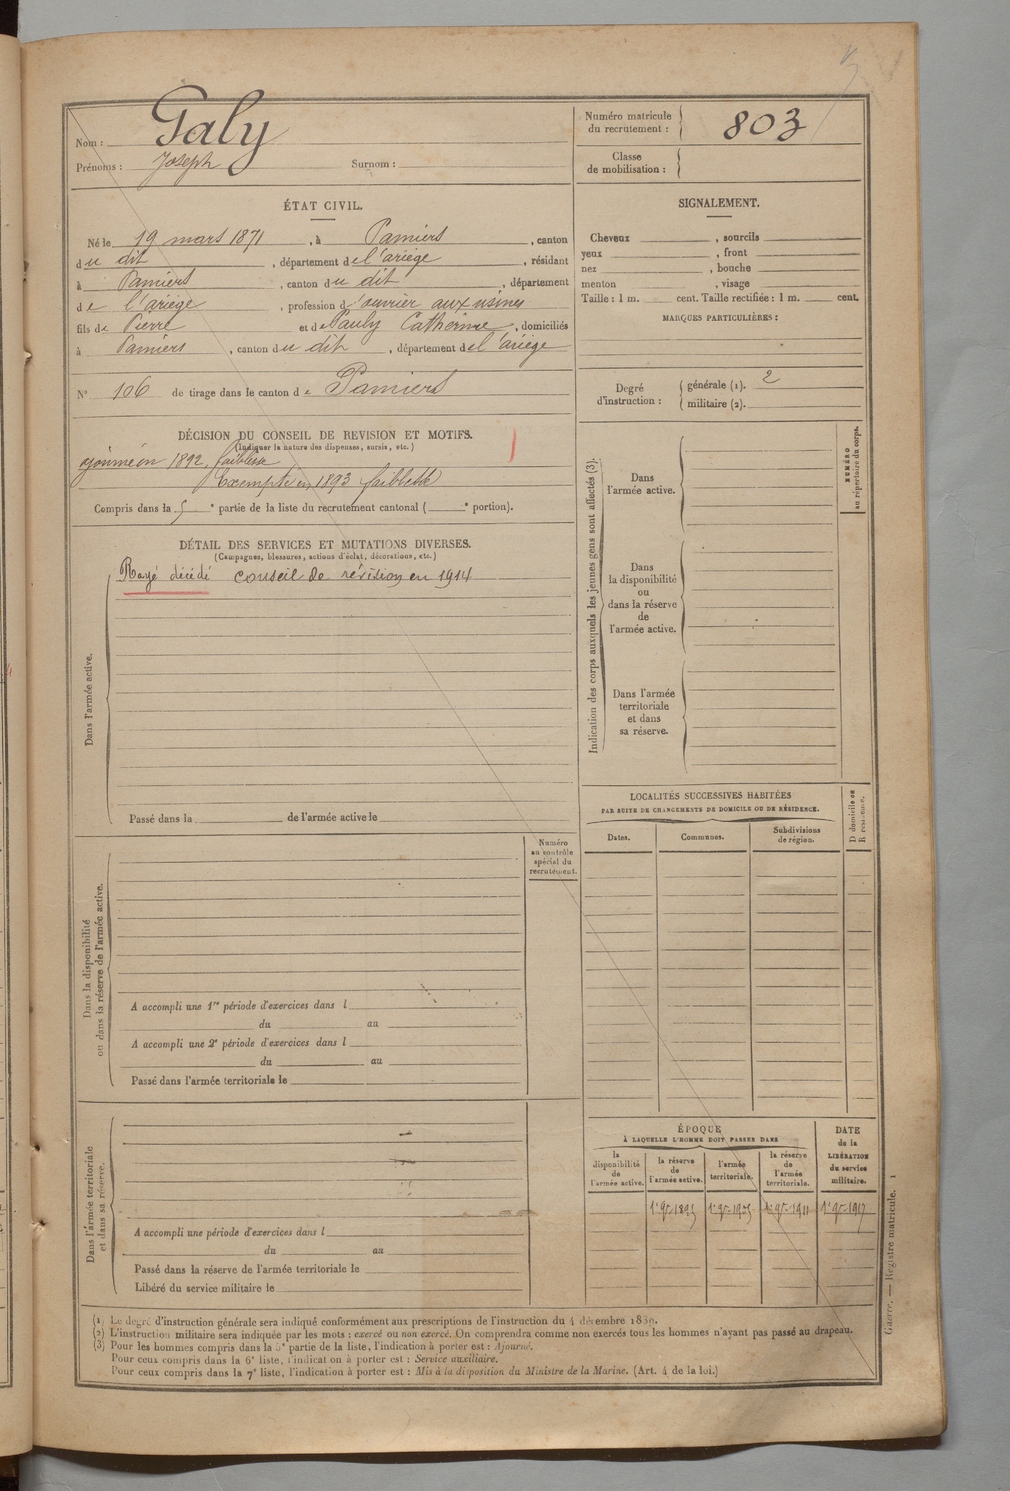 Nom : Galy
Prénoms : Joseph Surnom :
Numéro matricule du recrutement : 803
Classe de mobilisation :
ÉTAT CIVIL.
Né le 19 mars 1871, à Pamiers, canton
du dit, département de l'ariège, résidant
à Pamiers, canton du dit, département
de l'ariège, profession d'ouvrier aux usines
fils de Pierre et de Pauly Catherine, domiciliés
à Pamiers, canton du dit, département de l'ariège
N° 106 de tirage dans le canton de Pamiers
SIGNALEMENT.
Cheveux , sourcils
yeux , front
nez , bouche
menton , visage
Taille : 1 m. cent. Taille rectifiée : 1 m. cent.
MARQUES PARTICULIÈRES :
Degré d'instruction : générale (1). 2
militaire (2).
DÉCISION DU CONSEIL DE REVISION ET MOTIFS.
(Indiquer la nature des dispenses, sursis, etc.)
ajourné en 1892, faiblesse
Exempté en 1893 faiblesse
Compris dans la 5e partie de la liste du recrutement cantonal ( e portion).
DÉTAIL DES SERVICES ET MUTATIONS DIVERSES.
(Campagnes, blessures, actions d'éclat, décorations, etc.)
Rayé décédé conseil de révision en 1914
Dans l'armée active.
Passé dans la de l'armée active le
Numéro
au contrôle
spécial du
recrutement.
Dans la disponibilité
ou dans la réserve de l'armée active.
A accompli une 1re période d'exercices dans l
du au
A accompli une 2e période d'exercices dans l
du au
Passé dans l'armée territoriale le
Dans l'armée territoriale
et dans sa réserve.
A accompli une période d'exercices dans l
du au
Passé dans la réserve de l'armée territoriale le
Libéré du service militaire le
Indication des corps auxquels les jeunes gens sont affectés (3).
NUMÉRO
au répertoire du corps.
Dans
l'armée active.
Dans
la disponibilité
ou
dans la réserve
de
l'armée active.
Dans l'armée
territoriale
et dans
sa réserve.
LOCALITÉS SUCCESSIVES HABITÉES
PAR SUITE DE CHANGEMENTS DE DOMICILE OU DE RÉSIDENCE.
Dates. Communes. Subdivisions de région.
D domicile ou
R résidence.
ÉPOQUE
À LAQUELLE L'HOMME DOIT PASSER DANS
la disponibilité de l'armée active.
la réserve de l'armée active.
l'armée territoriale.
la réserve de l'armée territoriale.
DATE
de la
LIBÉRATION
du service
militaire.
1er 9bre 1895 1er 9bre 1905 1er 9bre 1911 1er 9bre 1917
(1) Le degré d'instruction générale sera indiqué conformément aux prescriptions de l'instruction du 4 décembre 1889.
(2) L'instruction militaire sera indiquée par les mots : exercé ou non exercé. On comprendra comme non exercés tous les hommes n'ayant pas passé au drapeau.
(3) Pour les hommes compris dans la 5e partie de la liste, l'indication à porter est : Ajourné.
Pour ceux compris dans la 6e liste, l'indication à porter est : Service auxiliaire.
Pour ceux compris dans la 7e liste, l'indication à porter est : Mis à la disposition du Ministre de la Marine. (Art. 4 de la loi.)
Guerre. — Registre matricule. 1